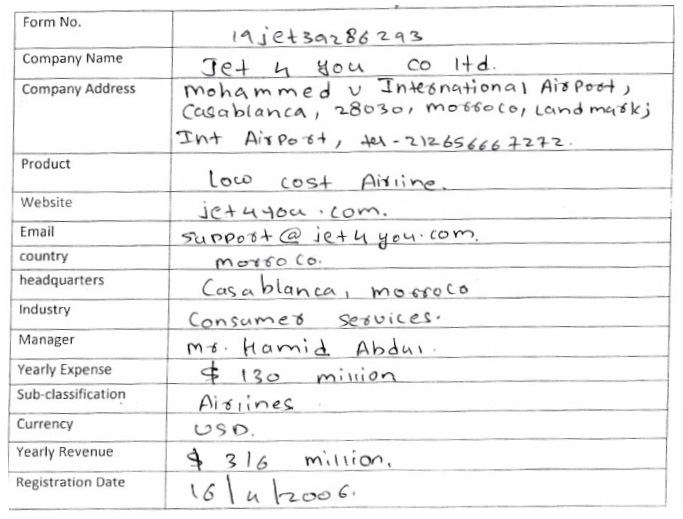 Form No. 19jet39286293
Company Name Jet 4 you co ltd.
Company Address Mohammed v International Airport,
Casablanca, 28030, morroco, Landmark;
Int Airport, tel - 212656667272.
Product Low cost Airline.
Website jet4you.com.
Email support@jet4you.com.
country morroco.
headquarters Casablanca, morroco
Industry Consumer services.
Manager Mr. Hamid Abdul.
Yearly Expense $ 130 million
Sub-classification Airlines
Currency USD.
Yearly Revenue $ 316 million.
Registration Date 16/4/2006.